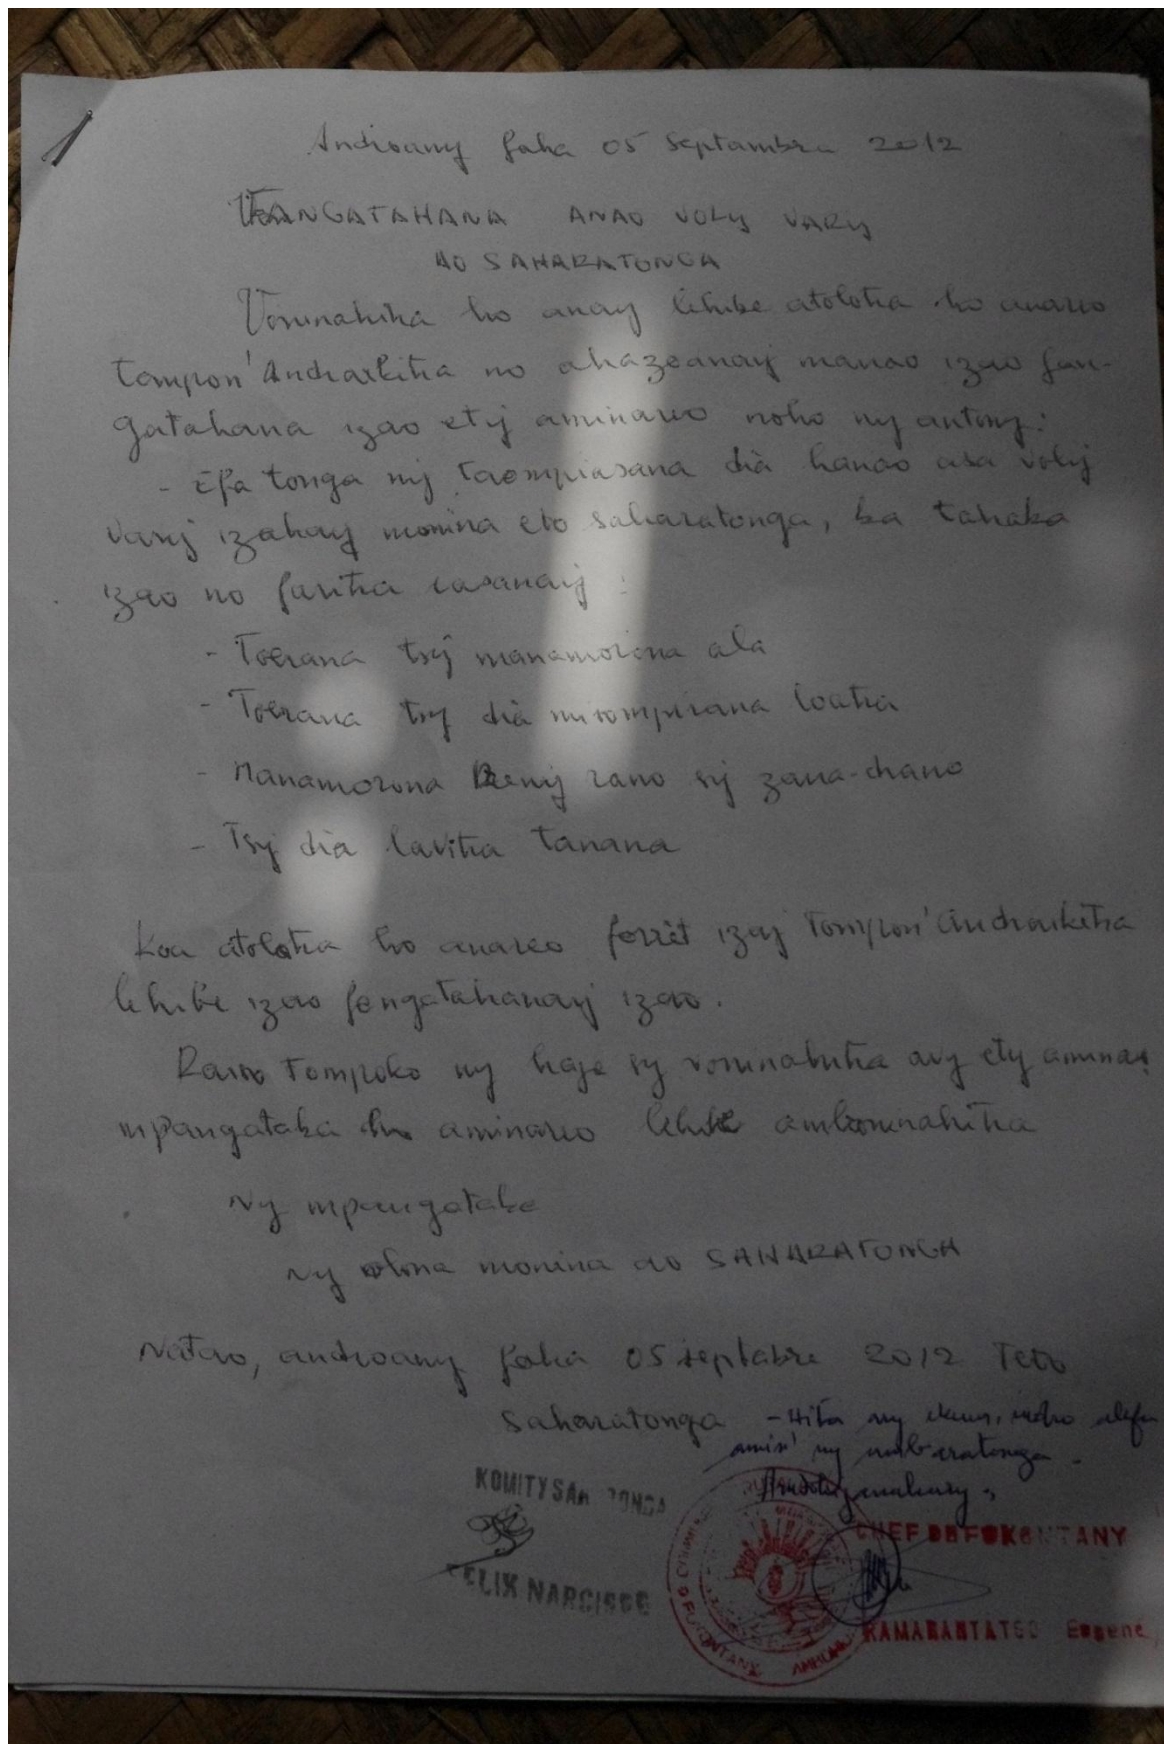 Androany faha 05 Septambra 2012
FANGATAHANA ANAO VOLY VARY
AO SAHARATONGA
Voninahitra ho anay lehibe atolotra ho anareo
tompon'Andraikitra no ahazoanay manao izao fan-
gatahana izao ety aminareo noho ny antony:
- Efa tonga ny taompiasana dia hanao asa voly
vary izahay monina eto saharatonga, ka tahaka
izao no faritra iasanay :
- Toerana tsy manamorona ala
- Toerana tsy dia misompirana loatra
- Manamorona Reny rano sy zana-drano
- Tsy dia lavitra tanana
Koa atolotra ho anareo forêt izay Tompon'andraikitra
lehibe izao fangatahanay izao.
Raiso tompoko ny haja sy voninahitra avy ety aminay
mpangataka ho aminareo lehibe ambonnahitra
Ny mpangataka
Ny olona monina ao SAHARATONGA
Natao, androany faha 05 septabre 2012 Teto
Saharatonga - Hita ny
amin' ny
KOMITY SAH TONGA
CHEF DE FOKONTANY
FELIX NARCISSE
FOKONTANY
Eugene